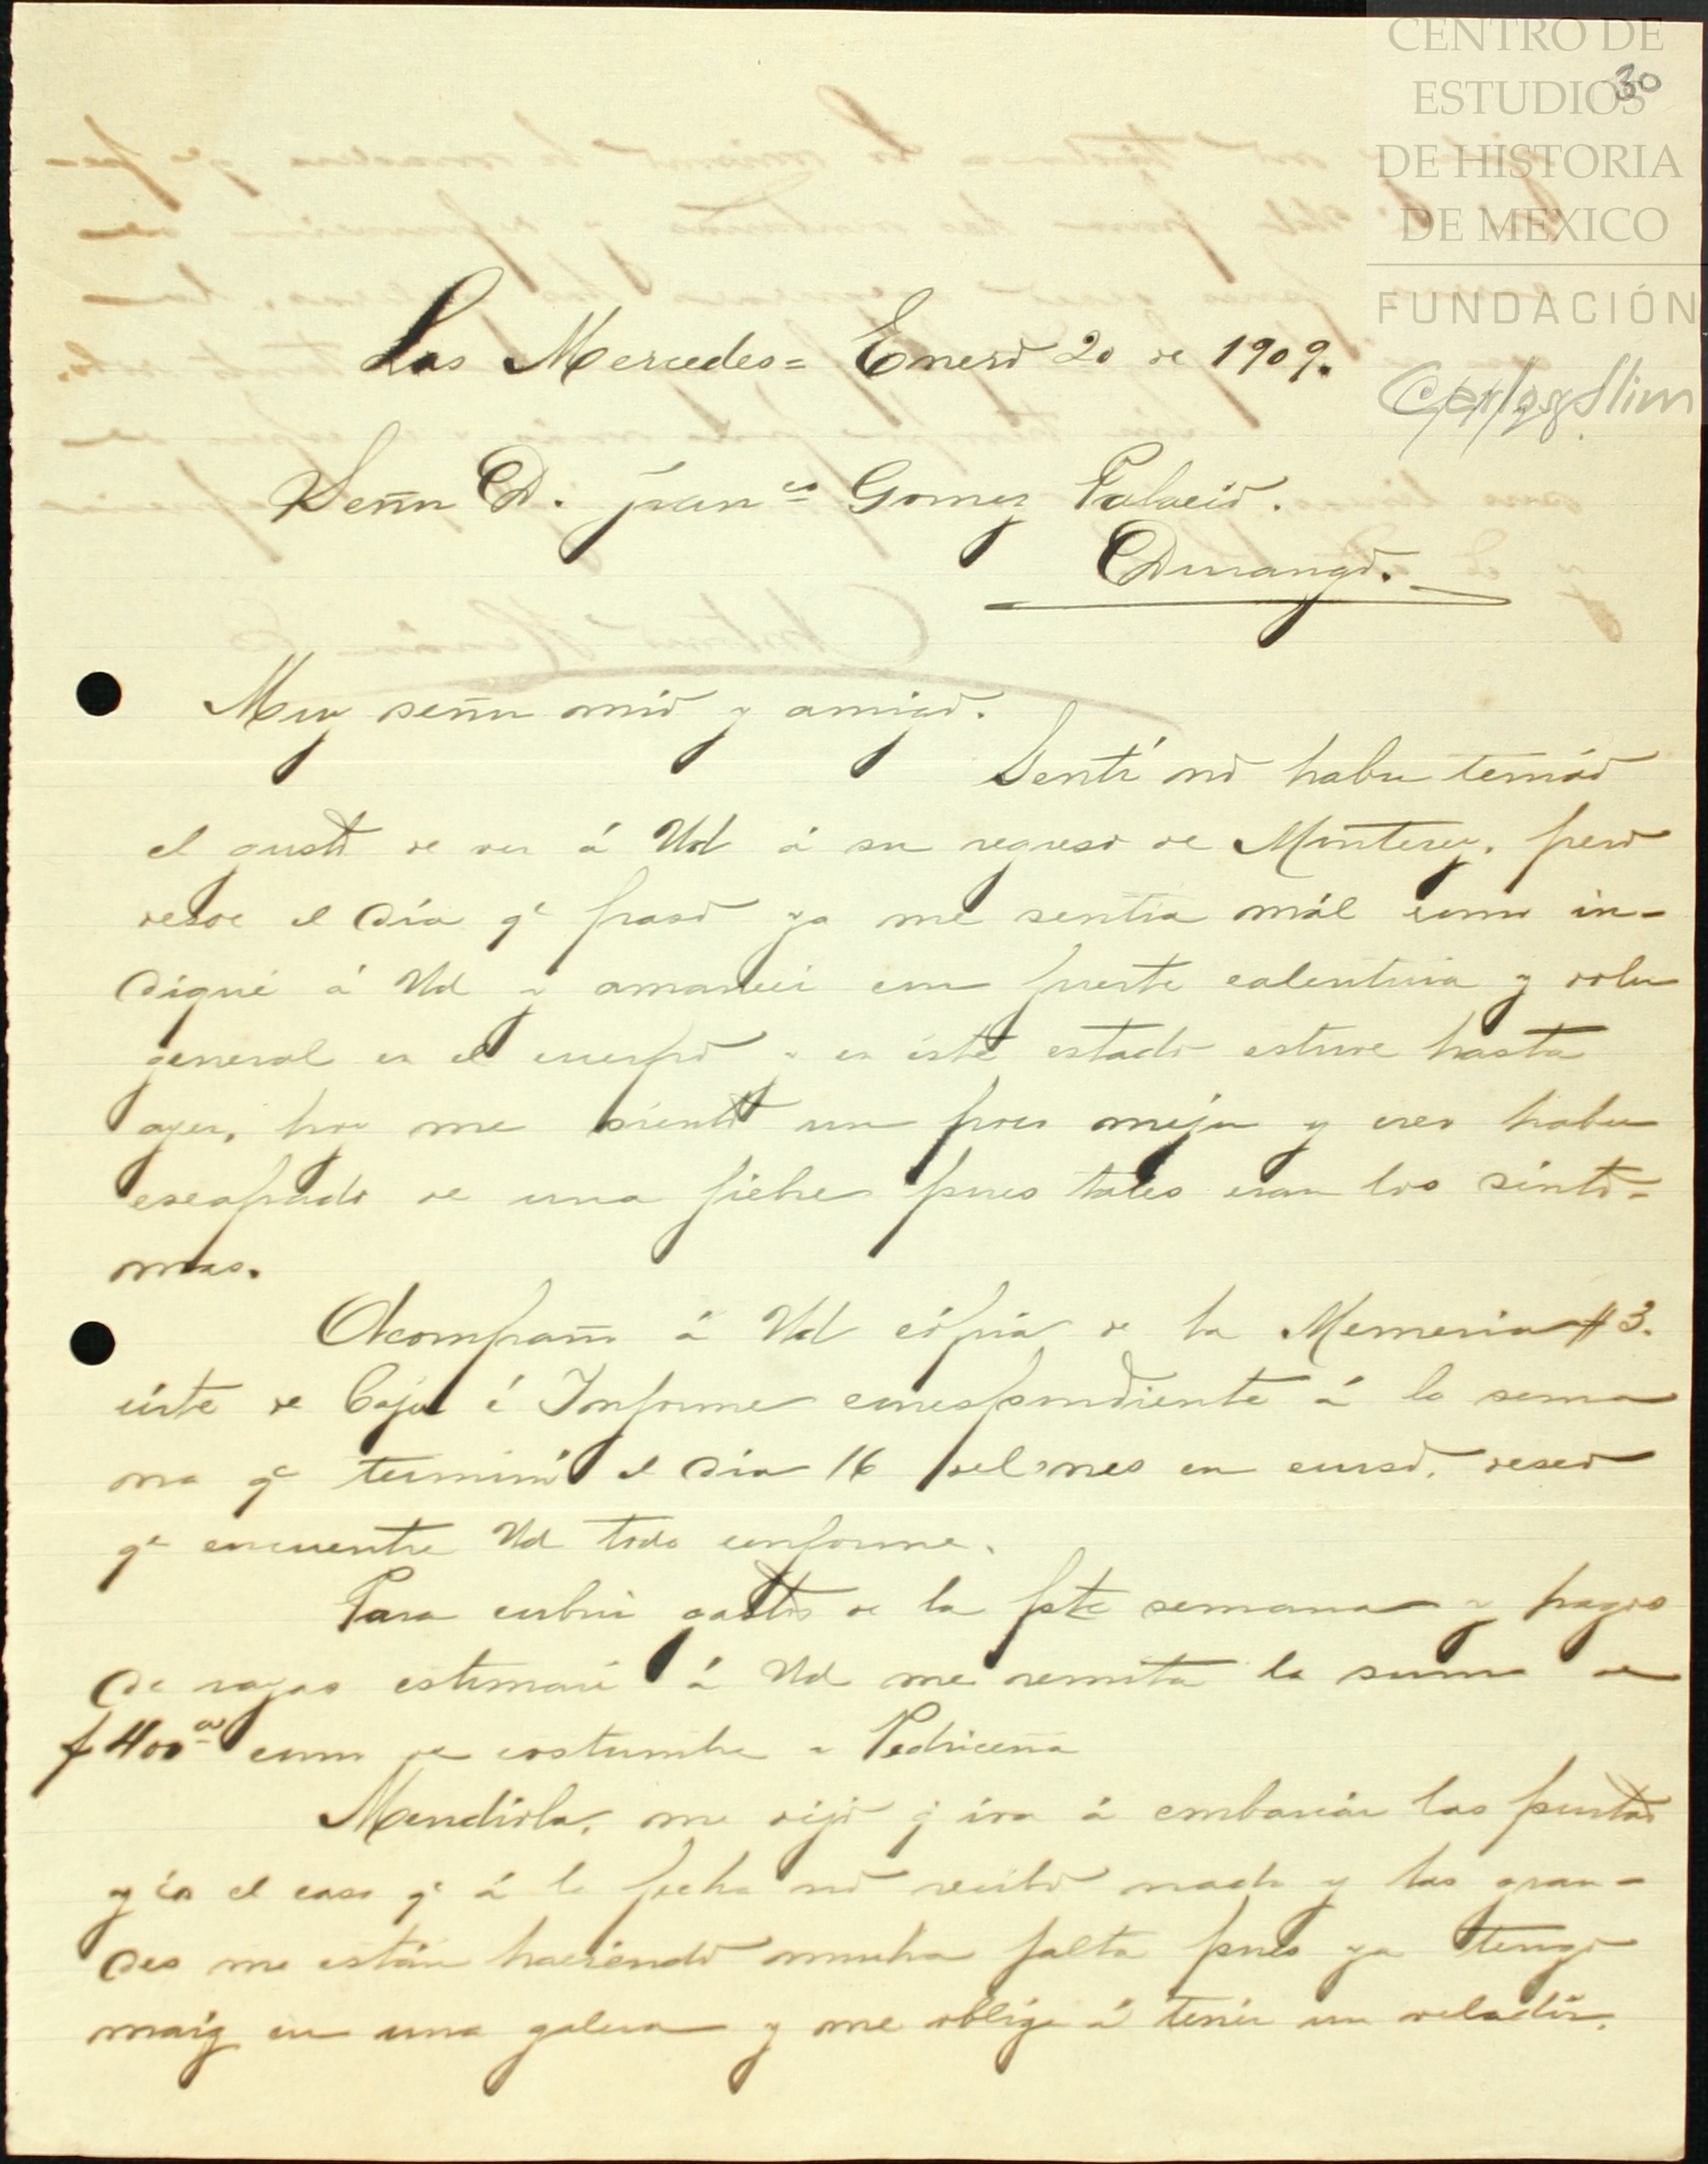 CENTRO DE
ESTUDIOS
DE HISTORIA
DE MEXICO
FUNDACIÓN
Carlos Slim
30
Las Mercedes= Enero 20 de 1909.
Señor D. Franco Gomez Palacio.
Durango.
Muy señor mio y amigo.
Sentí no haber tenido
el gusto de ver á Ud á su regreso de Monterey, pero
desde el día qe paso ya me sentia mál como in-
diqué á Ud y amaneci con fuerte calentura y dolor
general en el cuerpo y en éste estado estuve hasta
ayer, hoy me siento un poco mejor y creo haber
escapado de una fiebre pues tales eran los sínto-
mas.
Acompaño á Ud cópia de la Memoria # 3.
córte de Caja é Informe correspondiente á la sema
na qe terminó el día 16 del mes en curso, deseo
qe encuentre Ud todo conforme.
Para cubrir gastos de la pte semana y pagos
de rayas estimaré á Ud me remita la suma de
$400 00 como de costumbre a Pedriceña
Mendirla, me dijo q iva á embarcár las puertas
y és el caso qe á la fecha no recibo nada y las gran-
des me están haciendo mucha falta pues ya tengo
maiz en una galera y me obliga á tenér un veladór.